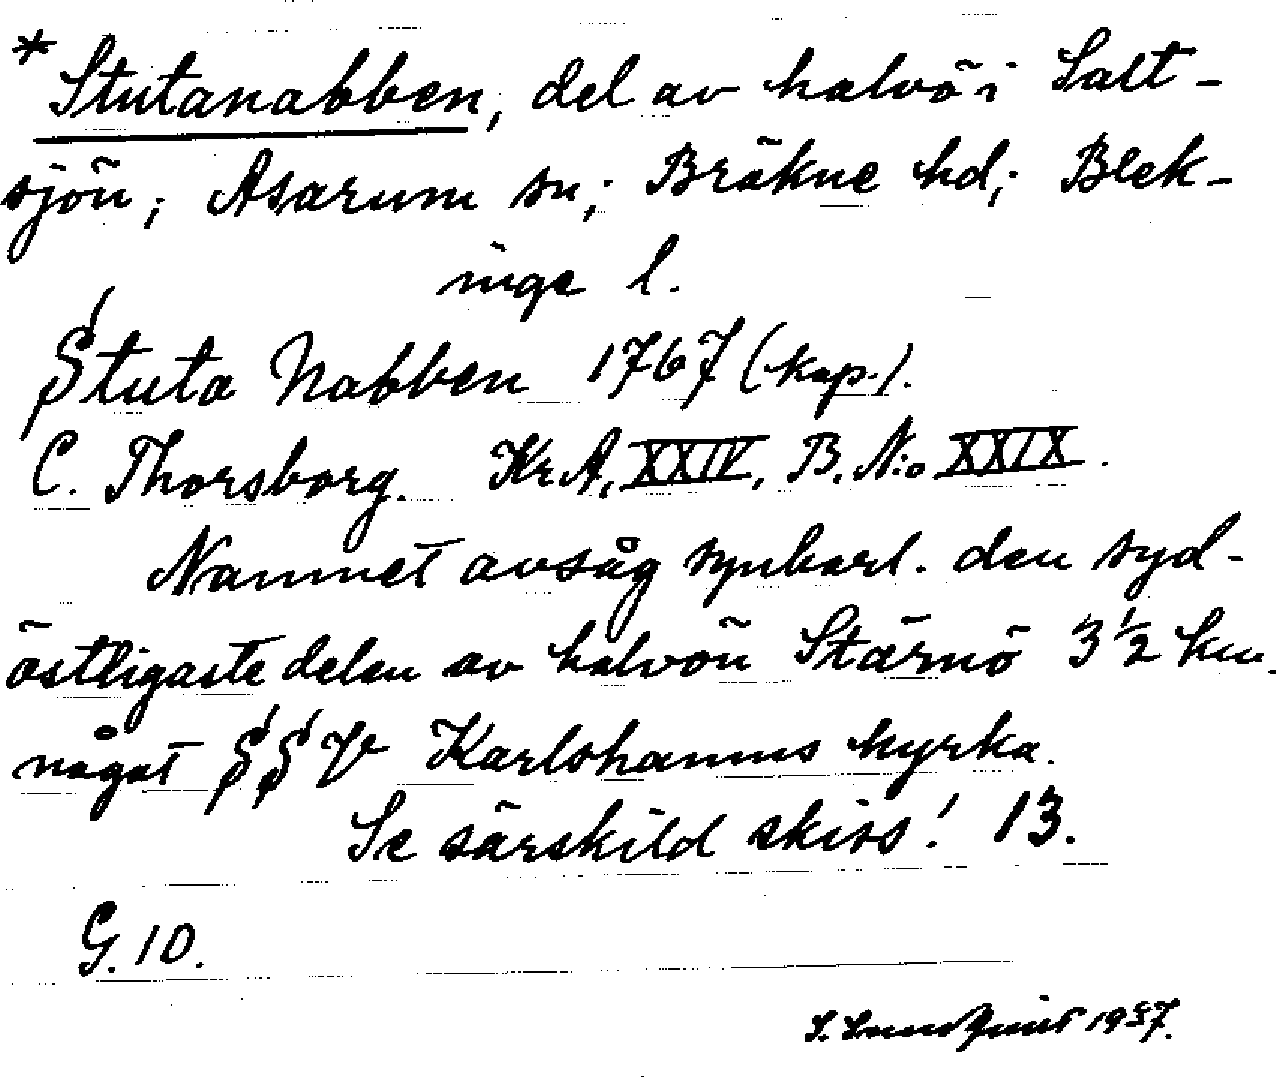 *Stutanabben, del av halvö i Salt-
sjön; Asarum sn; Bräkne hd; Blek-
inge l.
Stuta Nabben 1767 (kap.).
C. Thorsborg. Kr.A, XXIV, B. N:o XXIX.
Namnet avsåg synbarl. den syd-
östligaste delen av halvön Stärnö 3½ km.
något SSV Karlshamns kyrka.
Se särskild skiss! 13.
G. 10.
S. Lundquist 1937.